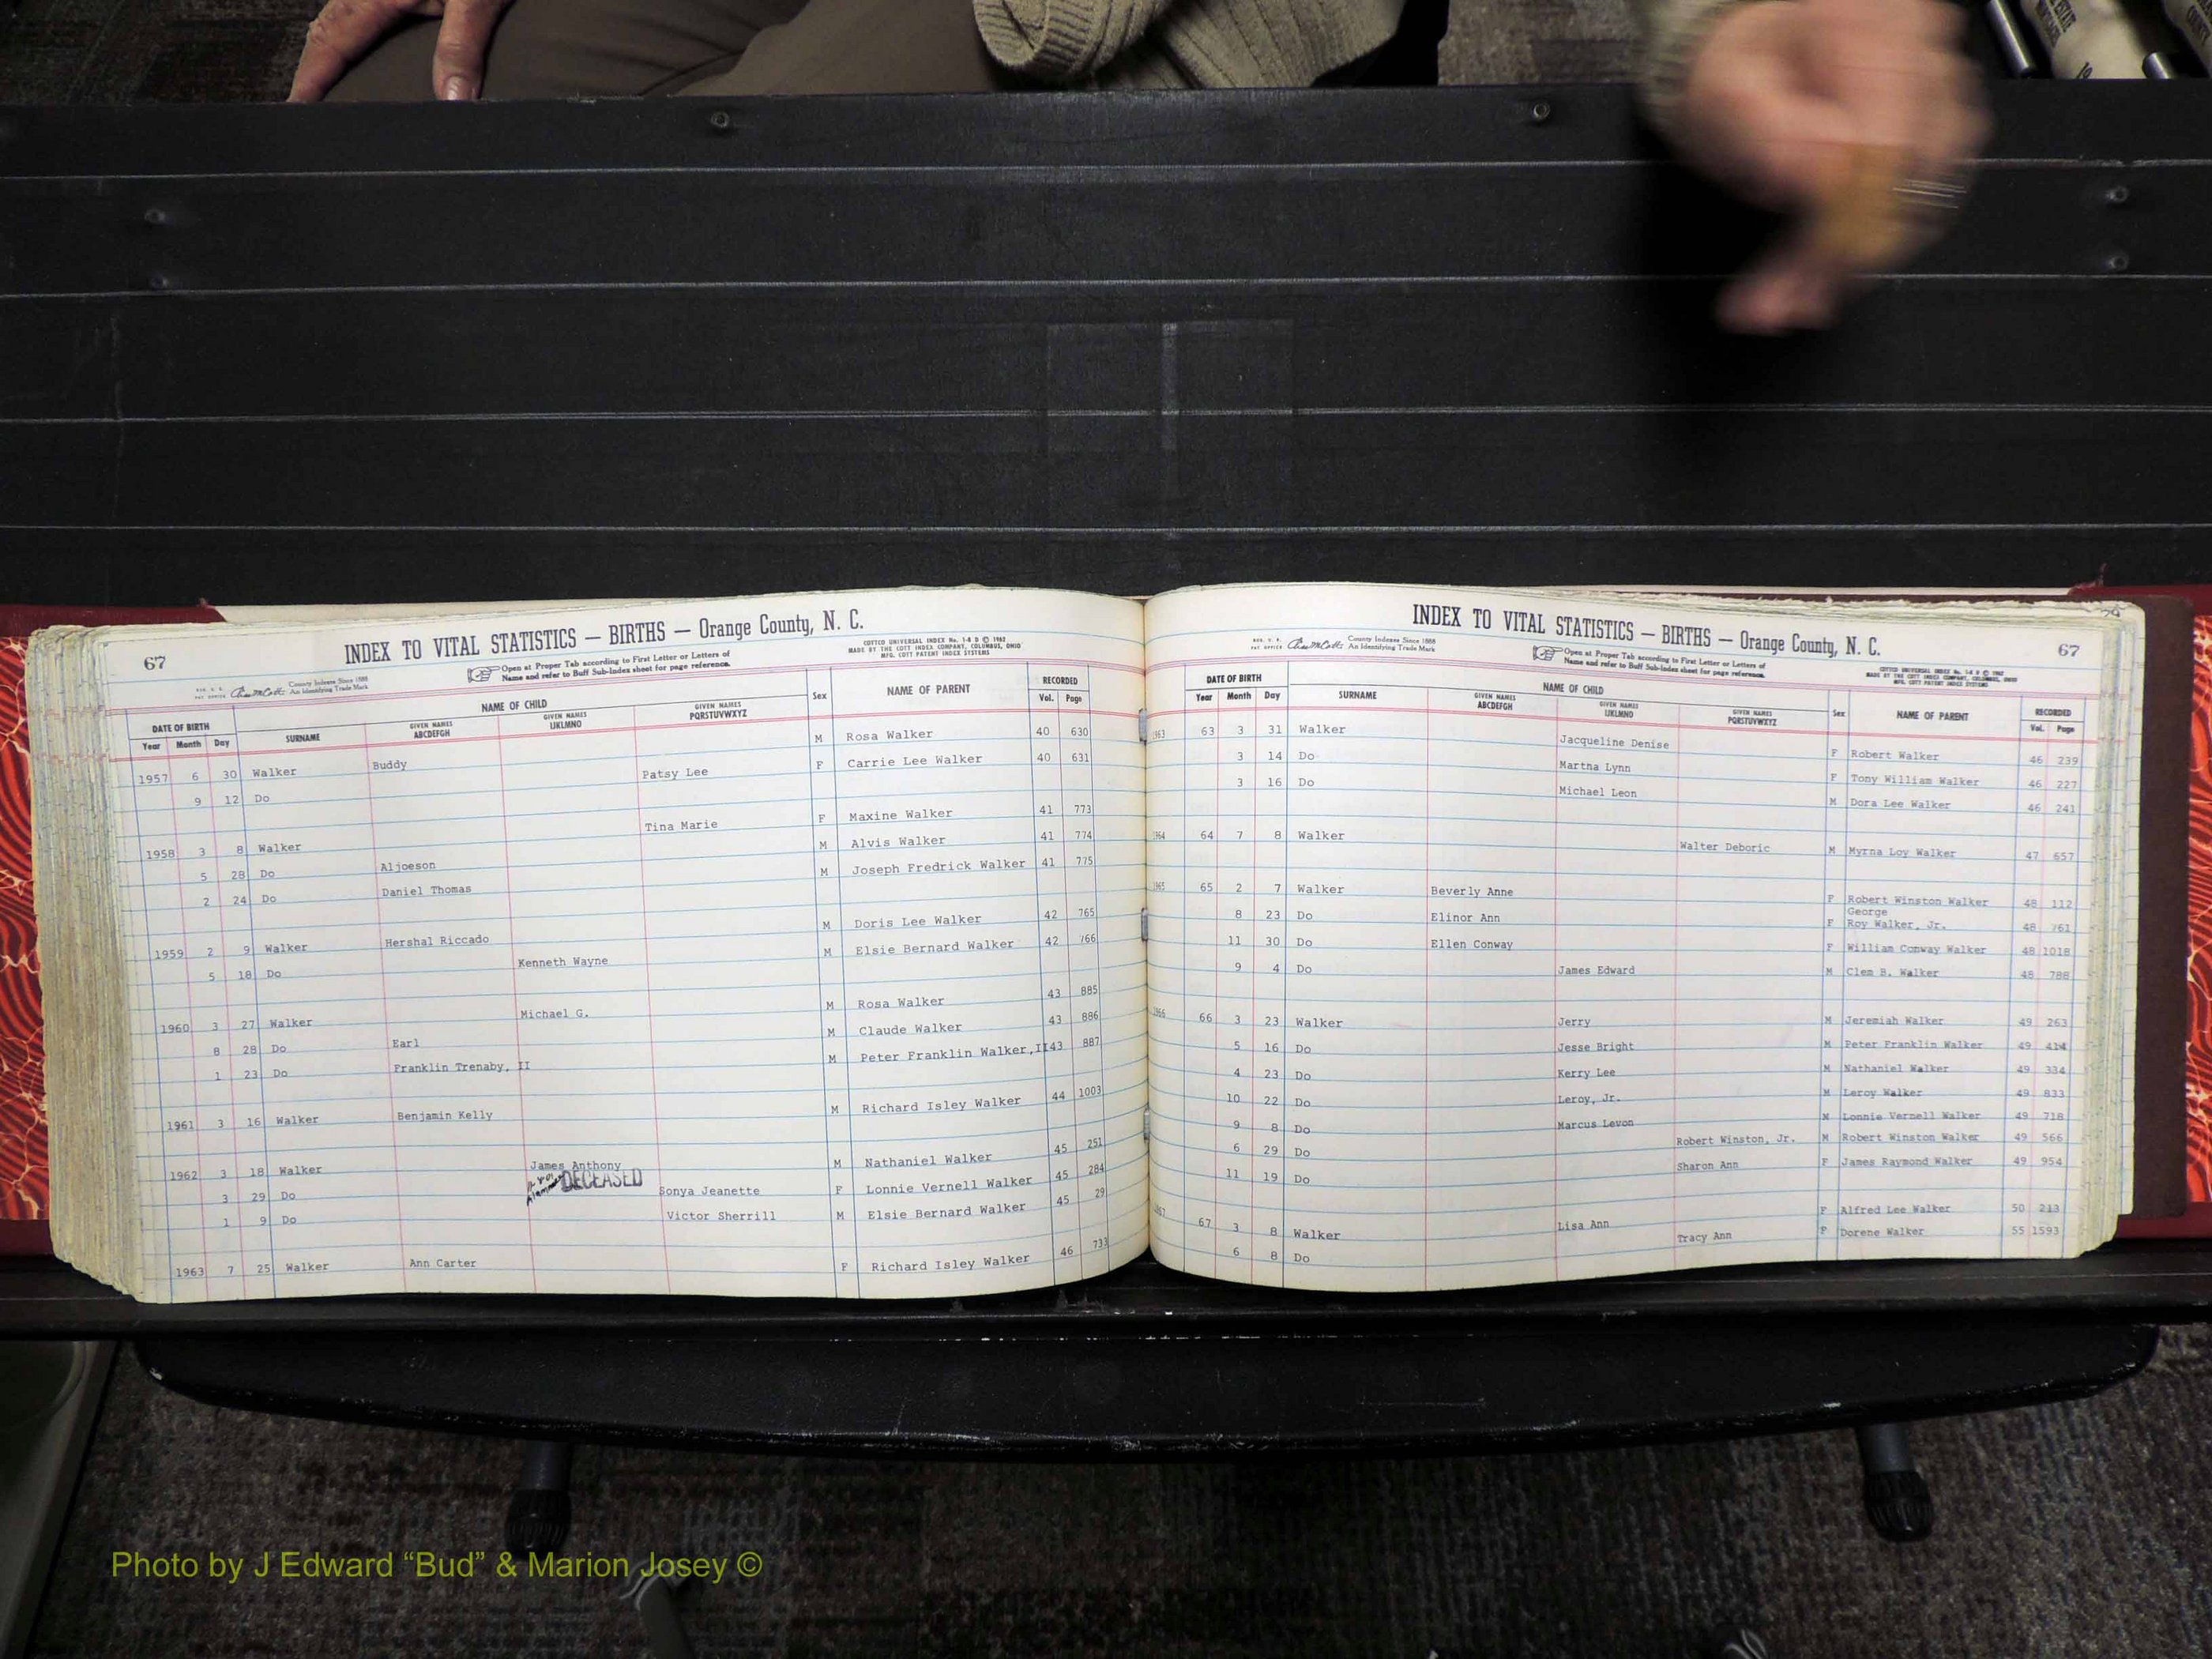 67
INDEX TO VITAL STATISTICS — BIRTHS — Orange County, N. C.
COTTCO UNIVERSAL INDEX No. 1-8 D © 1962
MADE BY THE COTT INDEX COMPANY, COLUMBUS, OHIO
MFG. COTT PATENT INDEX SYSTEMS
County Indexes Since 1888
An Identifying Trade Mark
Open at Proper Tab according to First Letter or Letters of
Name and refer to Buff Sub-Index sheet for page reference.
DATE OF BIRTH NAME OF CHILD Sex NAME OF PARENT RECORDED
Year Month Day SURNAME GIVEN NAMES ABCDEFGH GIVEN NAMES IJKLMNO GIVEN NAMES PQRSTUVWXYZ Vol. Page
1957 6 30 Walker Buddy M Rosa Walker 40 630
9 12 Do Patsy Lee F Carrie Lee Walker 40 631
1958 3 8 Walker Tina Marie F Maxine Walker 41 773
5 28 Do Aljoeson M Alvis Walker 41 774
2 24 Do Daniel Thomas M Joseph Fredrick Walker 41 775
1959 2 9 Walker Hershal Riccado M Doris Lee Walker 42 765
5 18 Do Kenneth Wayne M Elsie Bernard Walker 42 766
1960 3 27 Walker Michael G. M Rosa Walker 43 885
8 28 Do Earl M Claude Walker 43 886
1 23 Do Franklin Trenaby, II M Peter Franklin Walker,II 43 887
1961 3 16 Walker Benjamin Kelly M Richard Isley Walker 44 1003
1962 3 18 Walker James Anthony M Nathaniel Walker 45 251
DECEASED
3 29 Do Sonya Jeanette F Lonnie Vernell Walker 45 284
1 9 Do Victor Sherrill M Elsie Bernard Walker 45 29
1963 7 25 Walker Ann Carter F Richard Isley Walker 46 733
INDEX TO VITAL STATISTICS — BIRTHS — Orange County, N. C.
67
County Indexes Since 1888
An Identifying Trade Mark
Open at Proper Tab according to First Letter or Letters of
Name and refer to Buff Sub-Index sheet for page reference.
COTTCO UNIVERSAL INDEX No. 1-8 D © 1962
MADE BY THE COTT INDEX COMPANY, COLUMBUS, OHIO
MFG. COTT PATENT INDEX SYSTEMS
DATE OF BIRTH NAME OF CHILD Sex NAME OF PARENT RECORDED
Year Month Day SURNAME GIVEN NAMES ABCDEFGH GIVEN NAMES IJKLMNO GIVEN NAMES PQRSTUVWXYZ Vol. Page
1963 63 3 31 Walker Jacqueline Denise F Robert Walker 46 239
3 14 Do Martha Lynn F Tony William Walker 46 227
3 16 Do Michael Leon M Dora Lee Walker 46 241
1964 64 7 8 Walker Walter Deboric M Myrna Loy Walker 47 657
1965 65 2 7 Walker Beverly Anne F Robert Winston Walker 48 112
George
8 23 Do Elinor Ann F Roy Walker, Jr. 48 761
11 30 Do Ellen Conway F William Conway Walker 48 1018
9 4 Do James Edward M Clem B. Walker 48 788
1966 66 3 23 Walker Jerry M Jeremiah Walker 49 263
5 16 Do Jesse Bright M Peter Franklin Walker 49 414
4 23 Do Kerry Lee M Nathaniel Walker 49 334
10 22 Do Leroy, Jr. M Leroy Walker 49 833
9 8 Do Marcus Levon M Lonnie Vernell Walker 49 718
6 29 Do Robert Winston, Jr. M Robert Winston Walker 49 566
11 19 Do Sharon Ann F James Raymond Walker 49 954
67 3 8 Walker Lisa Ann F Alfred Lee Walker 50 213
6 8 Do Tracy Ann F Dorene Walker 55 1593
Photo by J Edward “Bud” & Marion Josey ©